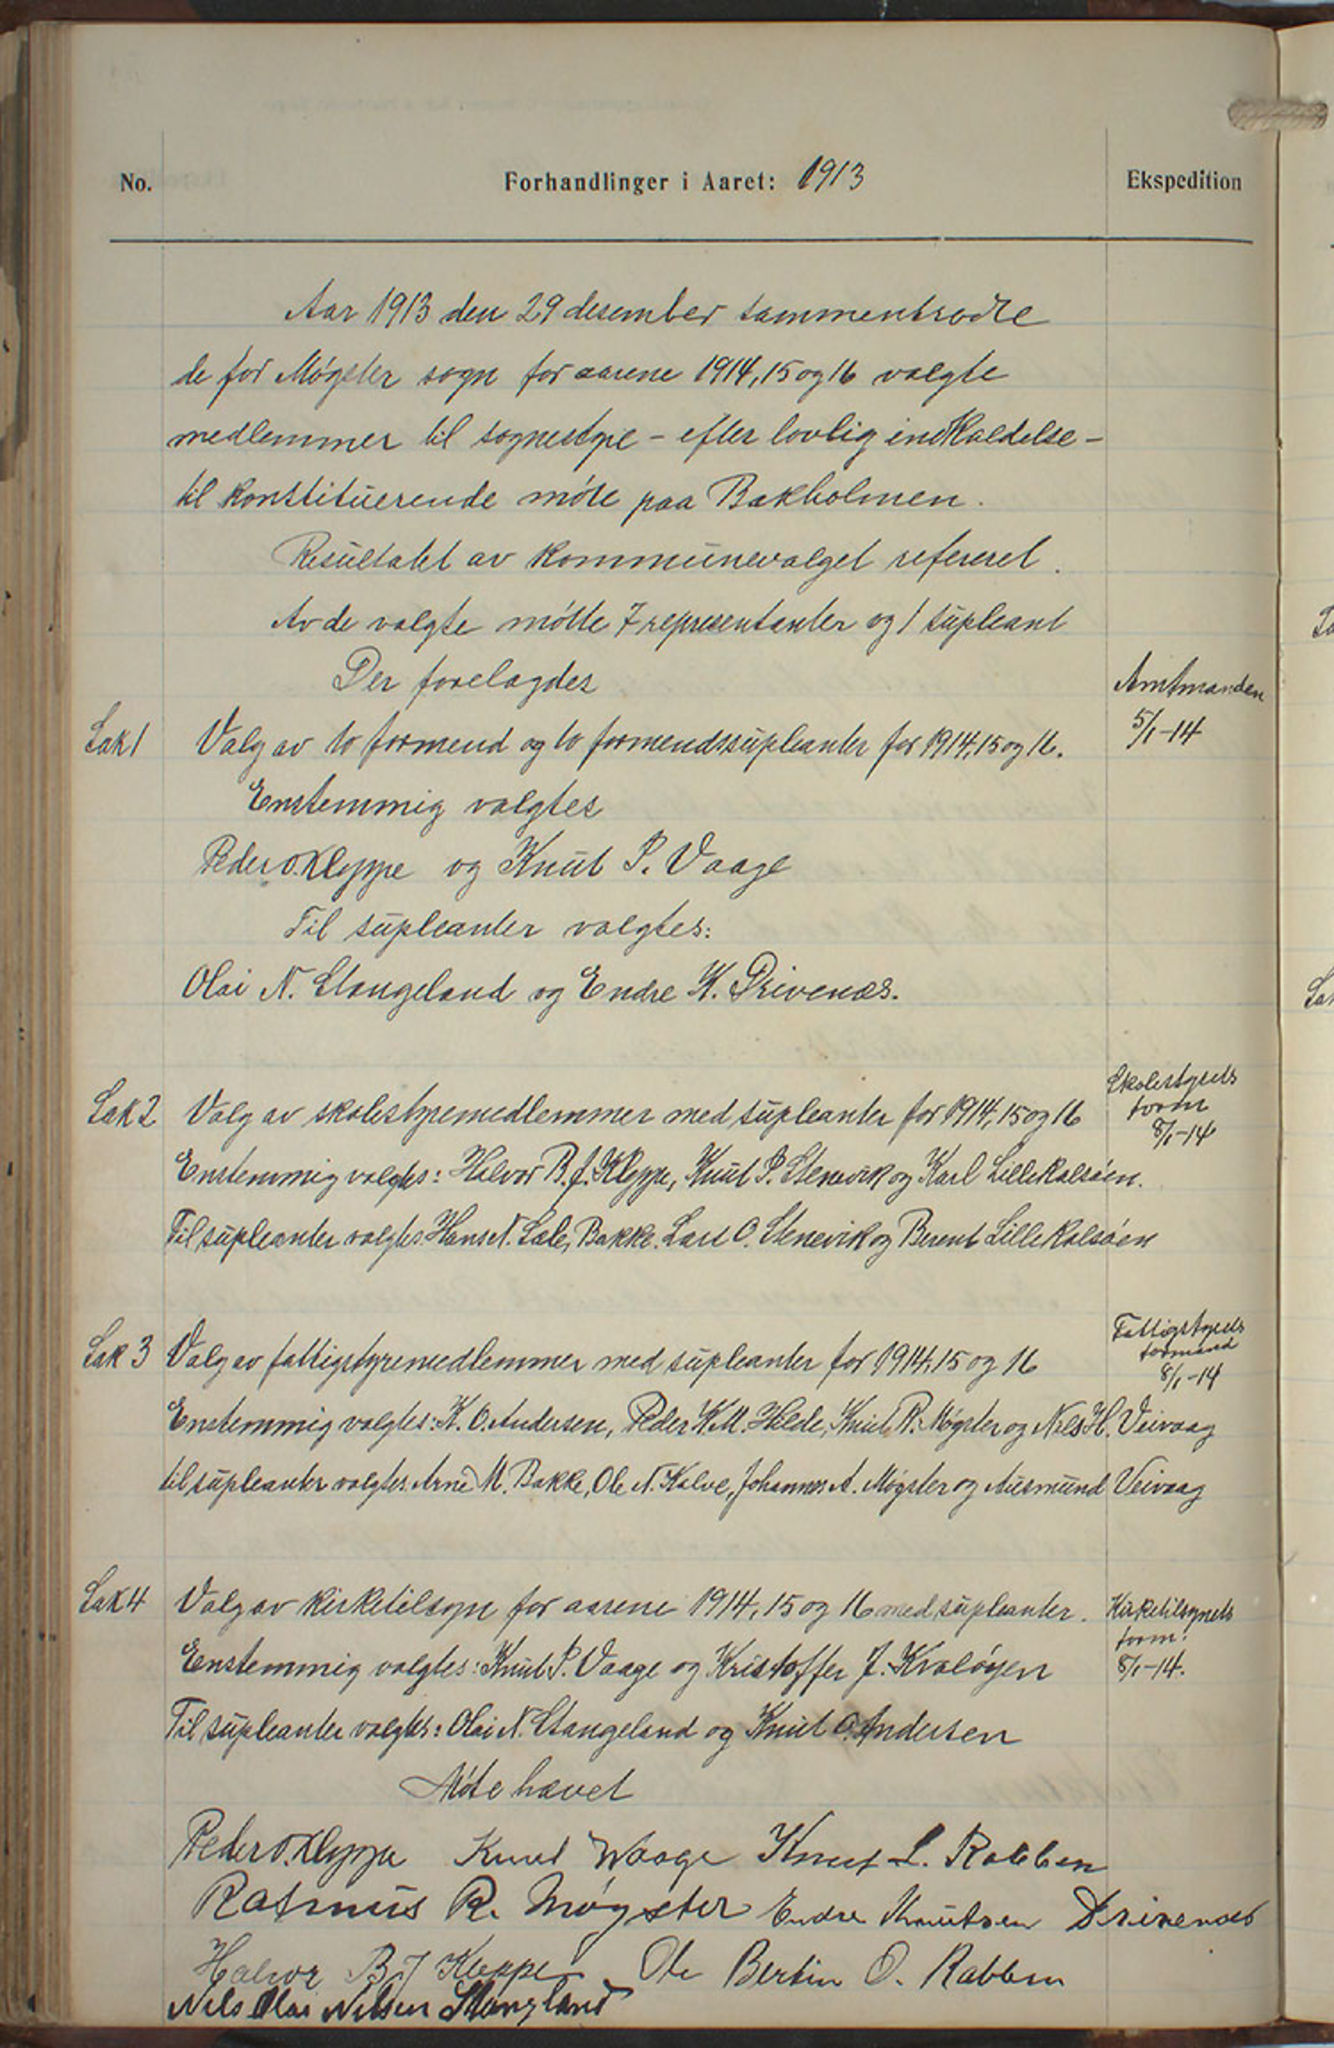 No. Forhandlinger i Aaret: 1913 Ekspedition
Aar 1913 den 29 desember sammentrodte
de for Møgster sogn for aarene 1914, 15 og 16 valgte
medlemmer til sognestyre - efter lovlig indkaldelse -
til konstituerende møte paa Bakholmen.
Resultatet av kommunevalget referert.
Av de valgte møtte 7 representanter og 1 supleant
Der forelagdes
Amtmanden
5/1-14
Sak 1 Valg av to formend og to formendssupleanter for 1914, 15 og 16.
Enstemmig valgtes
Peder O. Kleppe og Knut P. Vaage
Til supleanter valgtes:
Olai N. Stangeland og Endre K. Drivenæs.
Skolestyrets
form
8/1-14
Sak 2 Valg av skolestyremedlemmer med supleanter for 1914, 15 og 16
Enstemmig valgtes: Halvor B. J. Kleppe, Knut P. Stenevik og Karl Lillekalsøen.
Til supleanter valgtes Hans N. Sele, Bakke. Lars O. Stenevik og Berent Lillekalsøen
Fattigstyrets
formand
8/1-14
Sak 3 Valg av fattigstyremedlemmer med supleanter for 1914, 15 og 16
Enstemmig valgtes: K. O. Andersen, Peder K. M. Hilde, Knut R. Møgster og Nels H. Veivaag
til supleanter valgtes. Arne M. Bakke, Ole N. Kalve, Johannes A. Møgster og Ausmund Veivaag
Sak 4 Valg av kirketilsyn for aarene 1914, 15 og 16 med supleanter.
Kirketilsynets
form.
8/1-14.
Enstemmig valgtes: Knut P. Vaage og Kristoffer J. Kvaløyen
Til supleanter valgtes: Olai N. Stangeland og Knut O. Andersen
Møte hævet
Peder O. Kleppe Knut Waage Knut L. Rabben
Rasmus R. Møgster Endre Knutsen Drivenes
Halvor B J Kleppe Ole Bertin O. Rabben
Nils Olai Nilsen Stangland